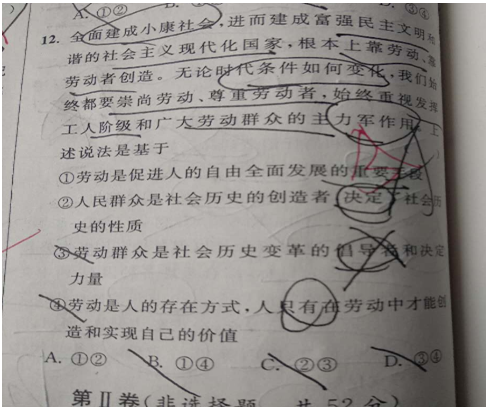 A. ①② D. ③④
12. 全面建成小康社会,进而建成富强民主文明和
谐的社会主义现代化国家,根本上靠劳动、靠
劳动者创造。无论时代条件如何变化,我们始
终都要崇尚劳动、尊重劳动者,始终重视发挥
工人阶级和广大劳动群众的主力军作用。上
述说法是基于
①劳动是促进人的自由全面发展的重要手段
②人民群众是社会历史的创造者,决定了社会历
史的性质
③劳动群众是社会历史变革的倡导者和决定
力量
④劳动是人的存在方式,人只有在劳动中才能创
造和实现自己的价值
A. ①② B. ①④ C. ②③ D. ③④
第Ⅱ卷(非选择题 共52分)